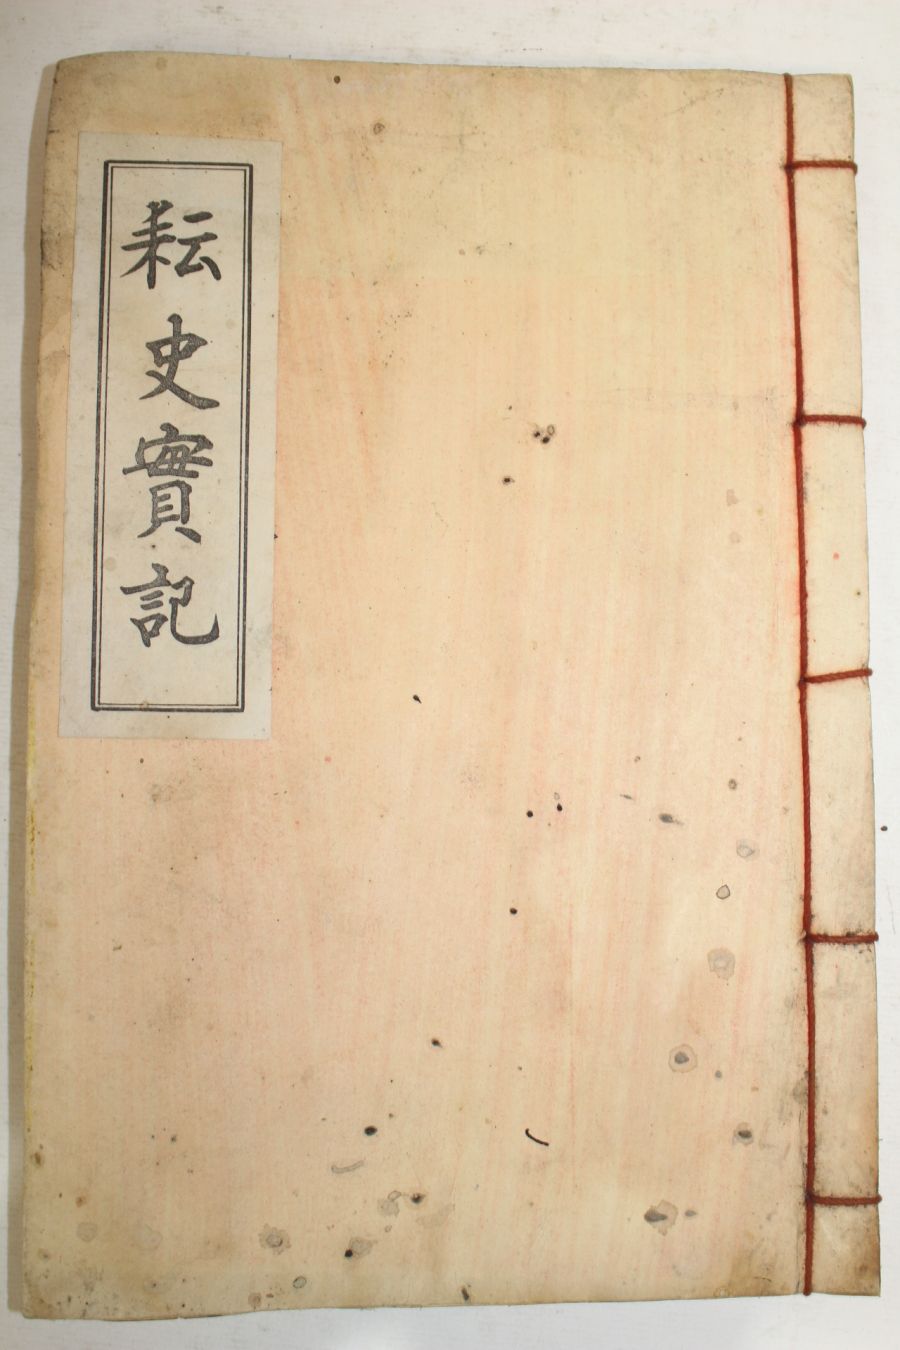 耘史實記